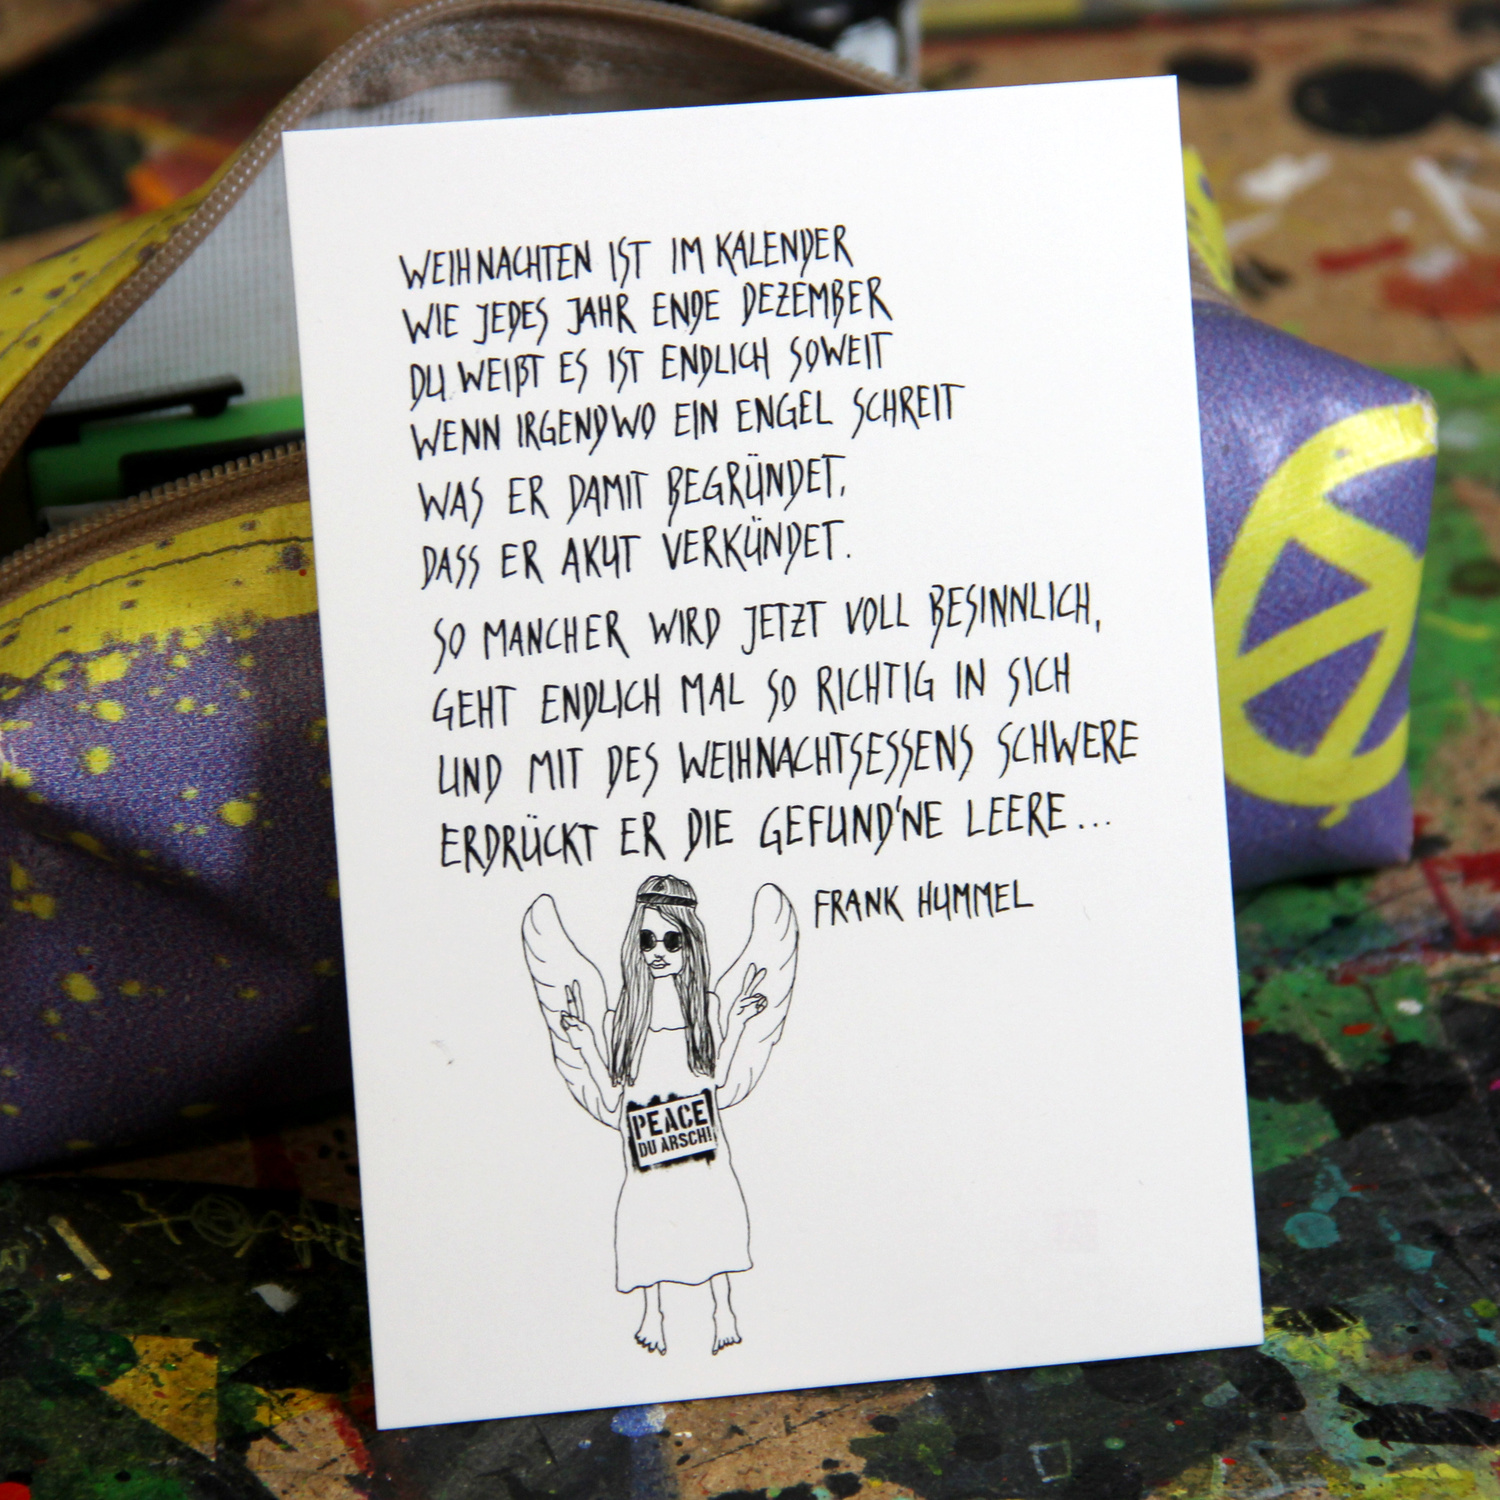 WEIHNACHTEN IST IM KALENDER
WIE JEDES JAHR ENDE DEZEMBER
DU WEIßT ES IST ENDLICH SOWEIT
WENN IRGENDWO EIN ENGEL SCHREIT
WAS ER DAMIT BEGRÜNDET,
DASS ER AKUT VERKÜNDET.
SO MANCHER WIRD JETZT VOLL BESINNLICH,
GEHT ENDLICH MAL SO RICHTIG IN SICH
UND MIT DES WEIHNACHTSESSENS SCHWERE
ERDRÜCKT ER DIE GEFUND'NE LEERE...
FRANK HUMMEL
PEACE
DU ARSCH!